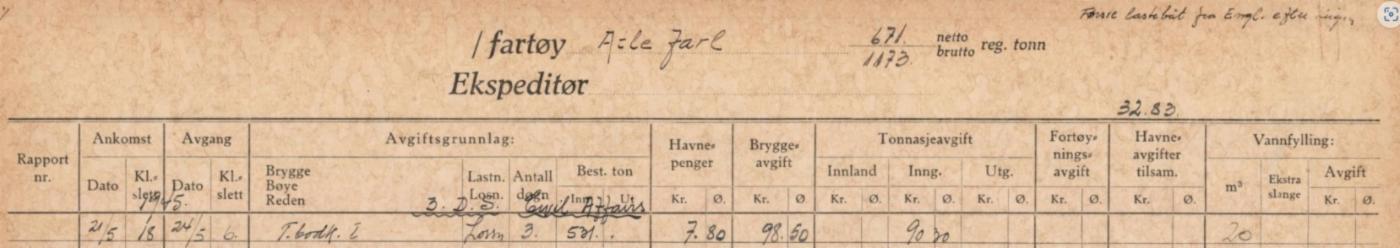 Første lastebåt fra Engl. efter
/ fartøy A=le Jarl 671. netto reg. tonn
1173. brutto
Ekspeditør
32.83.
Rapport nr. Ankomst Avgang Avgiftsgrunnlag: Havne-penger Brygge-avgift Tonnasjeavgift Fortøy-nings-avgift Havne-avgifter tilsam. Vannfylling:
Dato Kl.-slett Dato Kl.-slett Brygge Bøye Reden Lastn. Losn. Antall døgn Best. ton Inn. Ut. Innland Inng. Utg. m³ Ekstra slange Avgift
Kr. Ø. Kr. Ø. Kr. Ø. Kr. Ø. Kr. Ø. Kr. Ø. Kr. Ø. Kr. Ø.
1945. 3. D. S. Civil Affairs
21/5 18 24/5 6. T.bodk. I Lossn 3. 531. 7.80 98.50 90 30 20